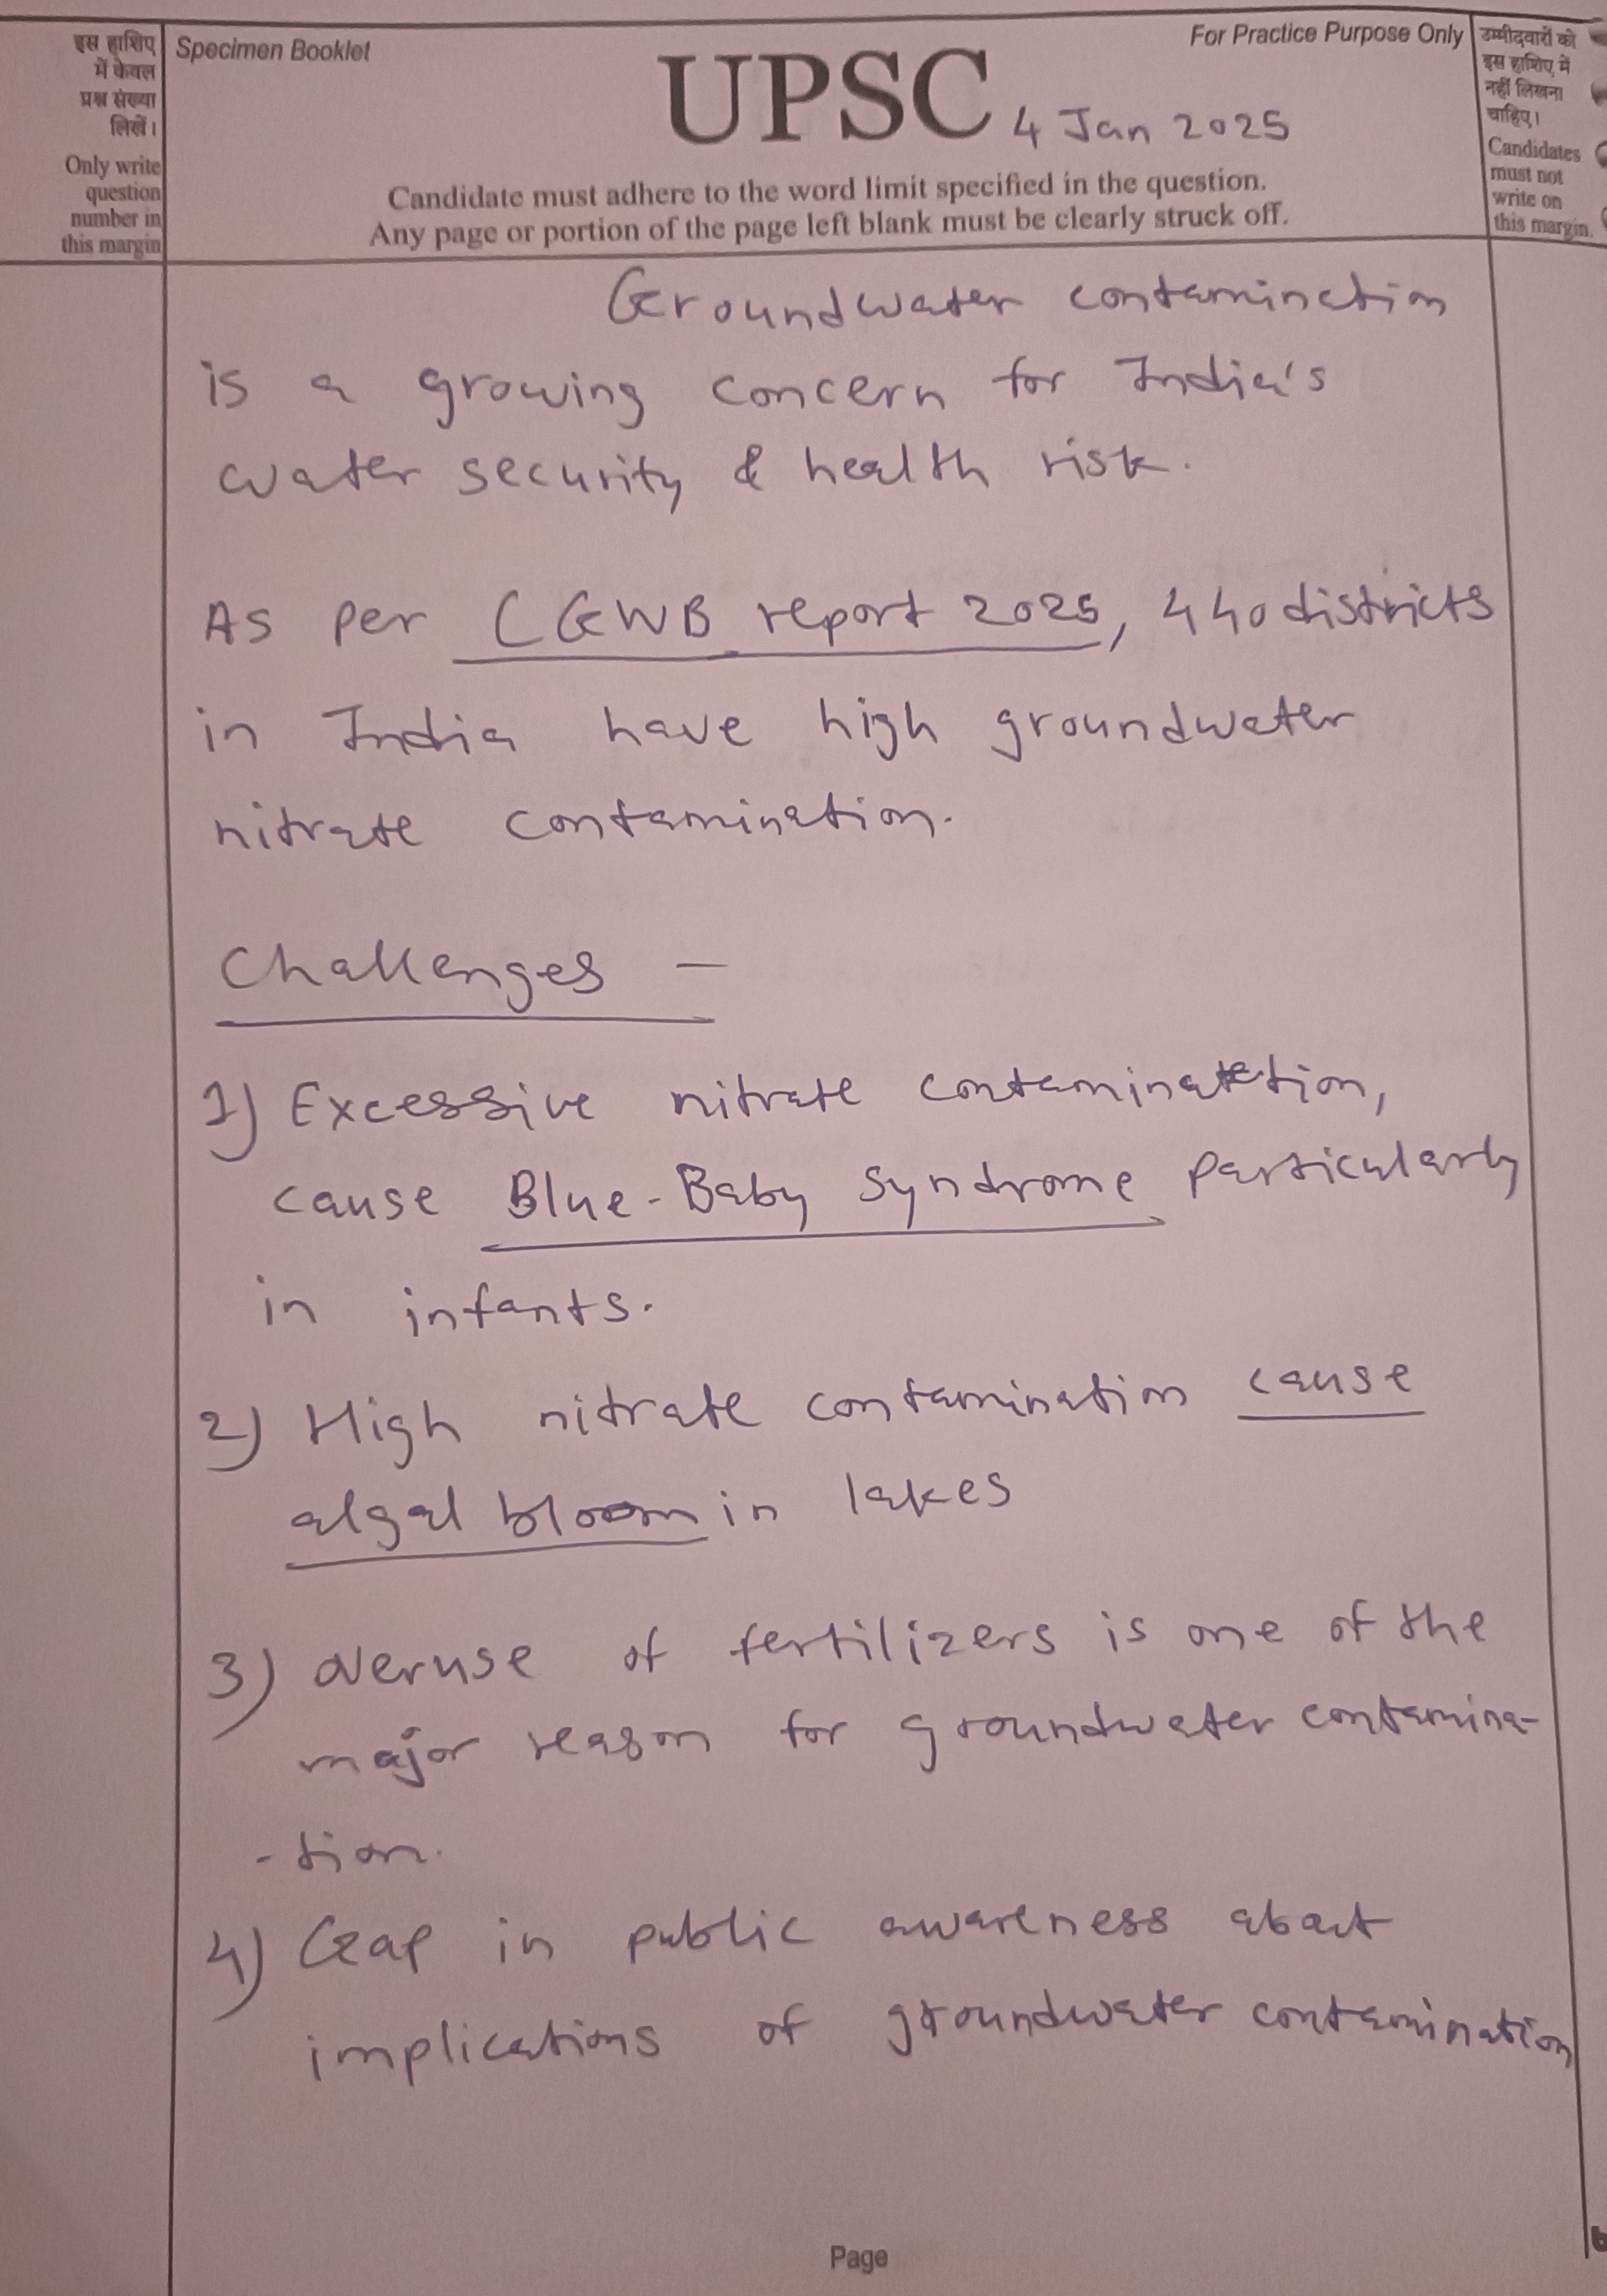 इस हाशिए
में केवल
प्रश्न संख्या
लिखें।
Only write
question
number in
this margin
Specimen Booklet
For Practice Purpose Only
UPSC
4 Jan 2025
Candidate must adhere to the word limit specified in the question.
Any page or portion of the page left blank must be clearly struck off.
उम्मीदवारों को
इस हाशिए में
नहीं लिखना
चाहिए।
Candidates
must not
write on
this margin.
Groundwater contamination
is a growing concern for India's
water security & health risk.
As per CGWB report 2025, 440 districts
in India have high groundwater
nitrate contamination.
Challenges –
1) Excessive nitrate contamination,
cause Blue-Baby Syndrome particularly
in infants.
2) High nitrate contamination cause
algal bloom in lakes
3) Overuse of fertilizers is one of the
major reason for groundwater contamina-
-tion.
4) Gap in public awareness about
implications of groundwater contamination
Page